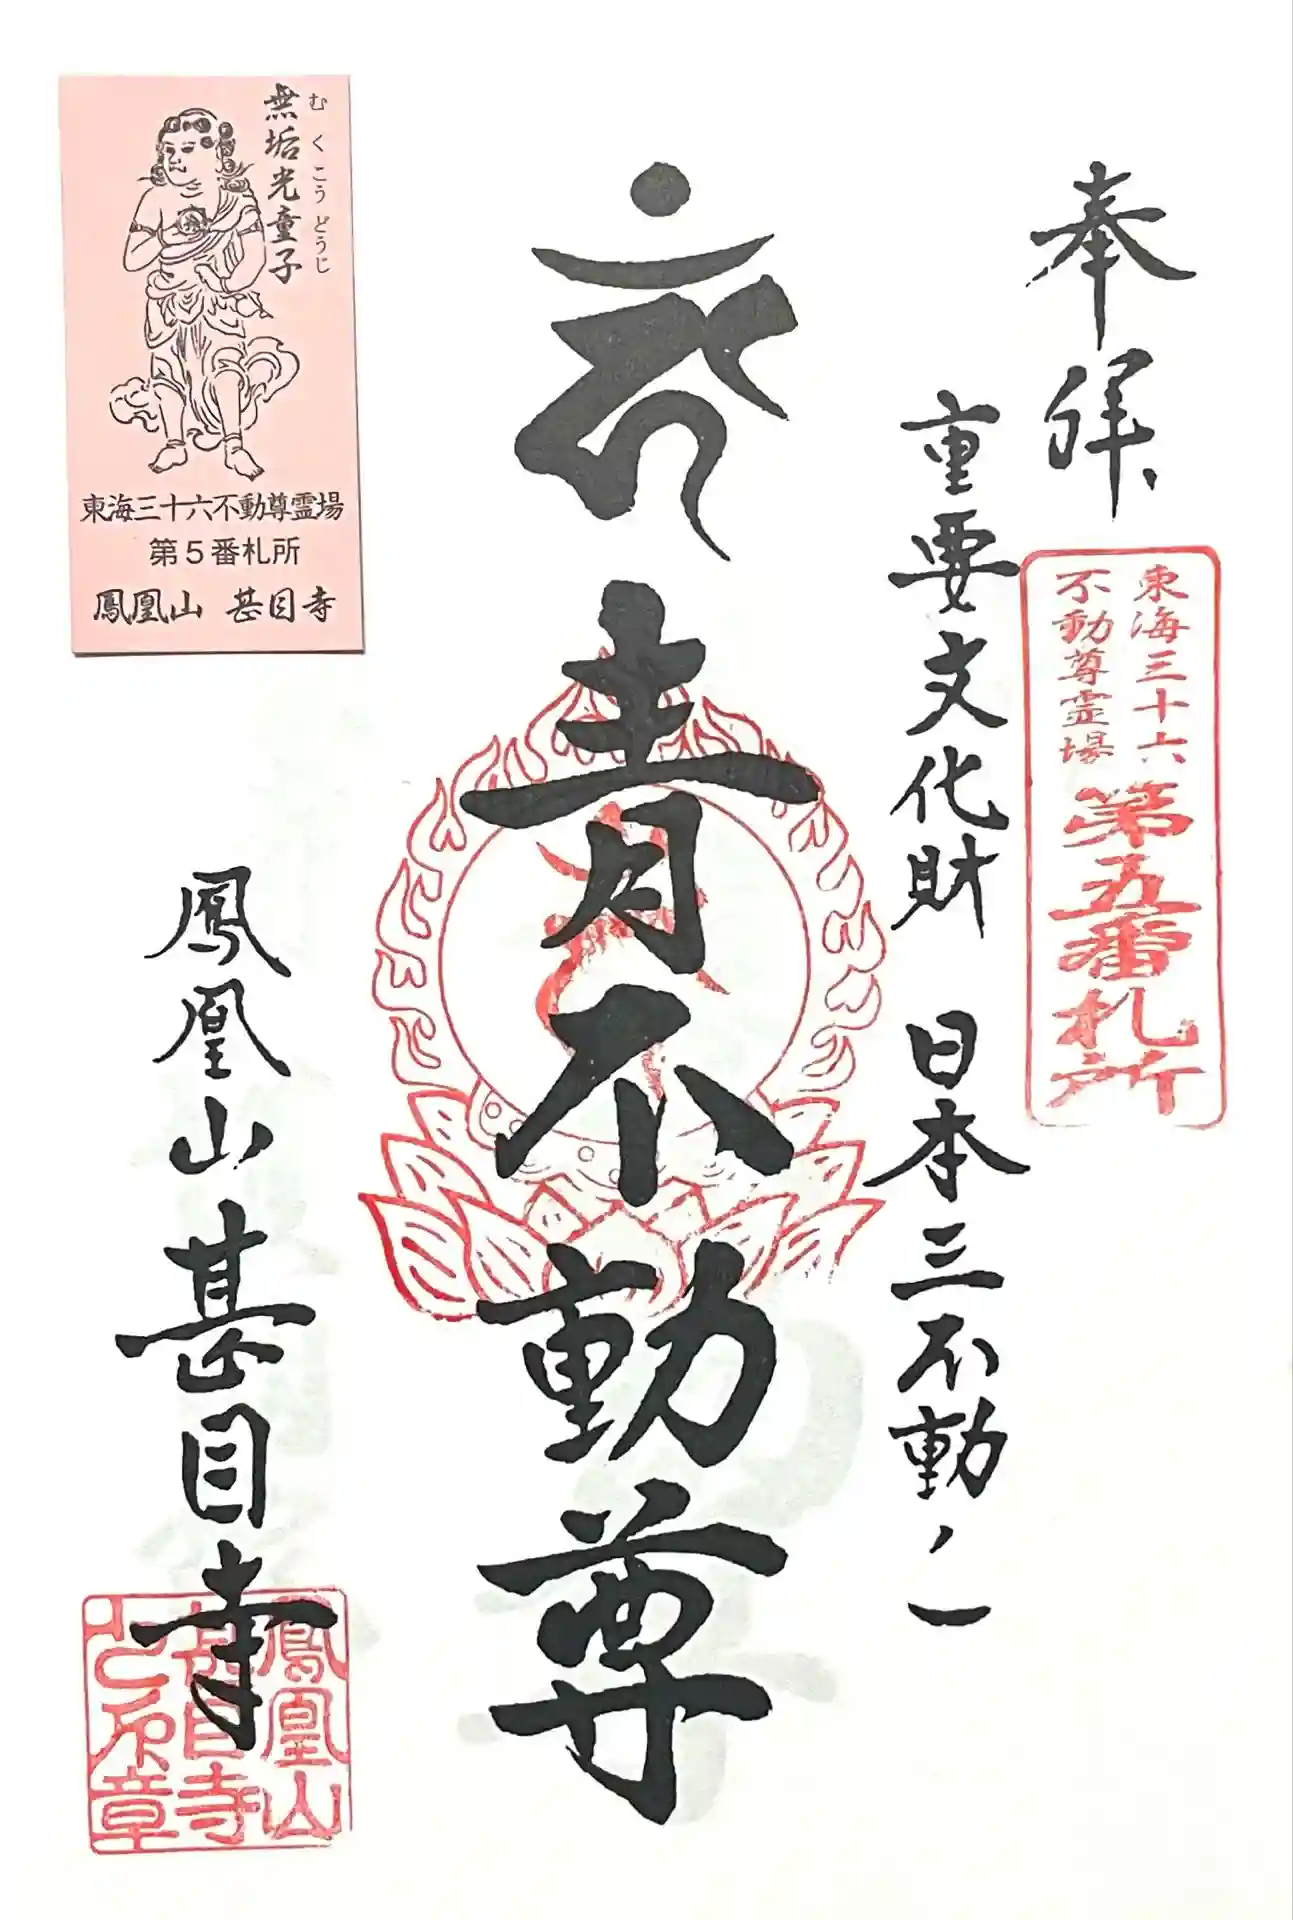 奉拝
東海三十六
不動尊霊場
第五番札所
重要文化財 日本三不動ノ一
青不動尊
鳳凰山甚目寺
鳳凰山
甚目寺
之印章
無垢光童子
むくこうどうじ
東海三十六不動尊霊場
第5番札所
鳳凰山 甚目寺